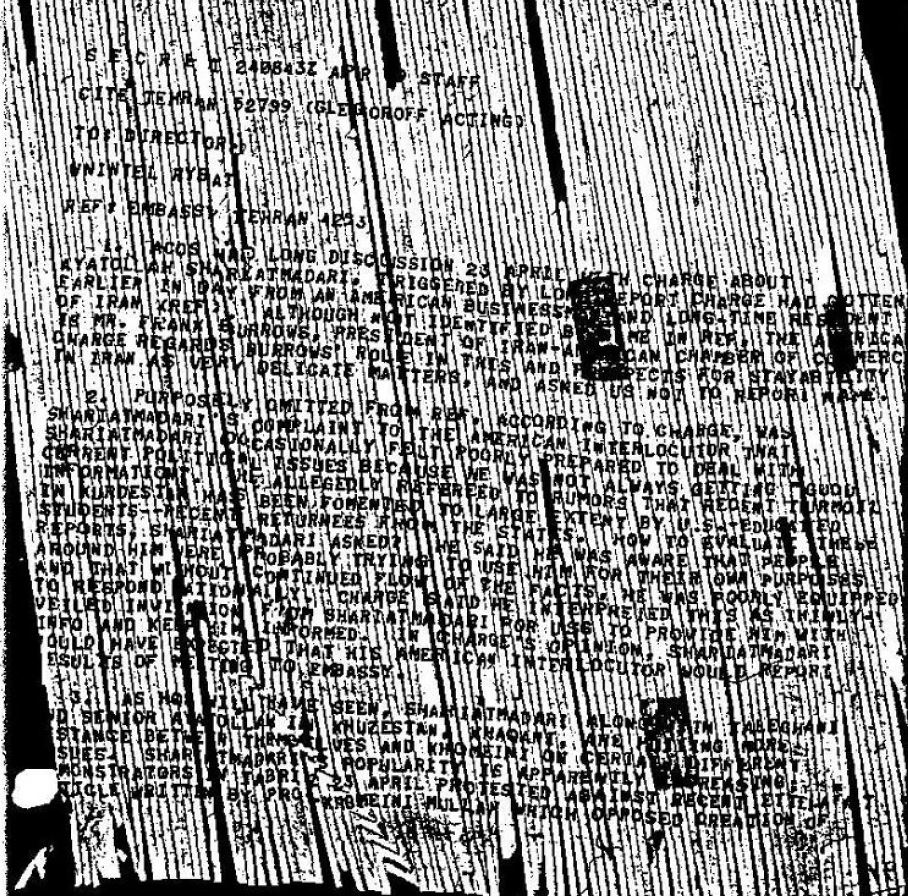 S E C R E T 240843Z APR STAFF
CITE TEHRAN 52799 ACTING)
TO: DIRECTOR.
WNINTEL RYBAT
REF: EMBASSY TEHRAN 4253
1. ACOS HAD LONG DISCUSSION 23 APRIL WITH CHARGE ABOUT
AYATOLLAH SHARIATMADARI, TRIGGERED BY LONG REPORT CHARGE HAD GOTTEN
EARLIER IN DAY FROM AN AMERICAN BUSINESSMAN AND LONG-TIME RESIDENT
OF IRAN (REF). ALTHOUGH NOT IDENTIFIED BY NAME IN REF, THE AMERICAN
IS MR. FRANK BURROWS, PRESIDENT OF IRAN-AMERICAN CHAMBER OF COMMERCE
CHARGE REGARDS BURROWS' ROLE IN THIS AND PROSPECTS FOR STAYABILITY
IN IRAN AS VERY DELICATE MATTERS, AND ASKED US NOT TO REPORT NAME.
2. PURPOSELY OMITTED FROM REF, ACCORDING TO CHARGE, WAS
SHARIATMADARI'S COMPLAINT TO THE AMERICAN INTERLOCUTOR THAT
SHARIATMADARI OCCASIONALLY FELT POORLY PREPARED TO DEAL WITH
CURRENT POLITICAL ISSUES BECAUSE HE WAS NOT ALWAYS GETTING "GOOD
INFORMATION". HE ALLEGEDLY REFERRED TO RUMORS THAT RECENT TURMOIL
IN KURDESTAN HAS BEEN FOMENTED TO LARGE EXTENT BY U.S.-EDUCATED
STUDENTS--RECENT RETURNEES FROM THE STATES. HOW TO EVALUATE THESE
REPORTS, SHARIATMADARI ASKED? HE SAID HE WAS AWARE THAT PEOPLE
AROUND HIM WERE PROBABLY TRYING TO USE HIM FOR THEIR OWN PURPOSES
AND THAT WITHOUT CONTINUED FLOW OF THE FACTS, HE WAS POORLY EQUIPPED
TO RESPOND RATIONALLY. CHARGE SAID HE INTERPRETED THIS AS THINLY-
VEILED INVITATION FROM SHARIATMADARI FOR USG TO PROVIDE HIM WITH
INFO AND KEEP HIM INFORMED. IN CHARGE'S OPINION, SHARIATMADARI
OULD HAVE EXPECTED THAT HIS AMERICAN INTERLOCUTOR WOULD REPORT
ESULTS OF MEETING TO EMBASSY.
3. AS HQS WILL HAVE SEEN, SHARIATMADARI ALONG WITH TALEGHANI
ND SENIOR AYATOLLAH IN KHUZESTAN, KHAQANI, ARE PUTTING MORE
STANCE BETWEEN THEMSELVES AND KHOMEINI ON CERTAIN DIFFERENT
SUES. SHARIATMADARI'S POPULARITY IS APPARENTLY INCREASING.
MONSTRATORS IN TABRIZ 23 APRIL PROTESTED AGAINST RECENT ETTELA'AT
TICLE WRITTEN BY PRO-KHOMEINI MULLAH WHICH OPPOSED CREATION OF